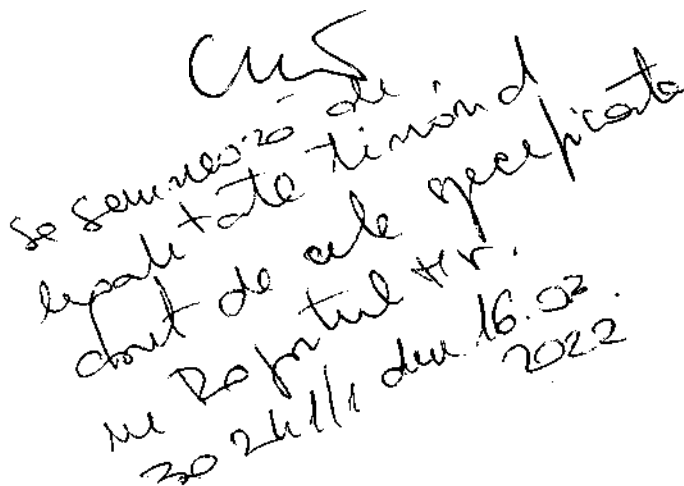 se semnează de
legalitate ținând
cont de cele specificate
în Raportul nr.
30241/1 din 16.02.
2022